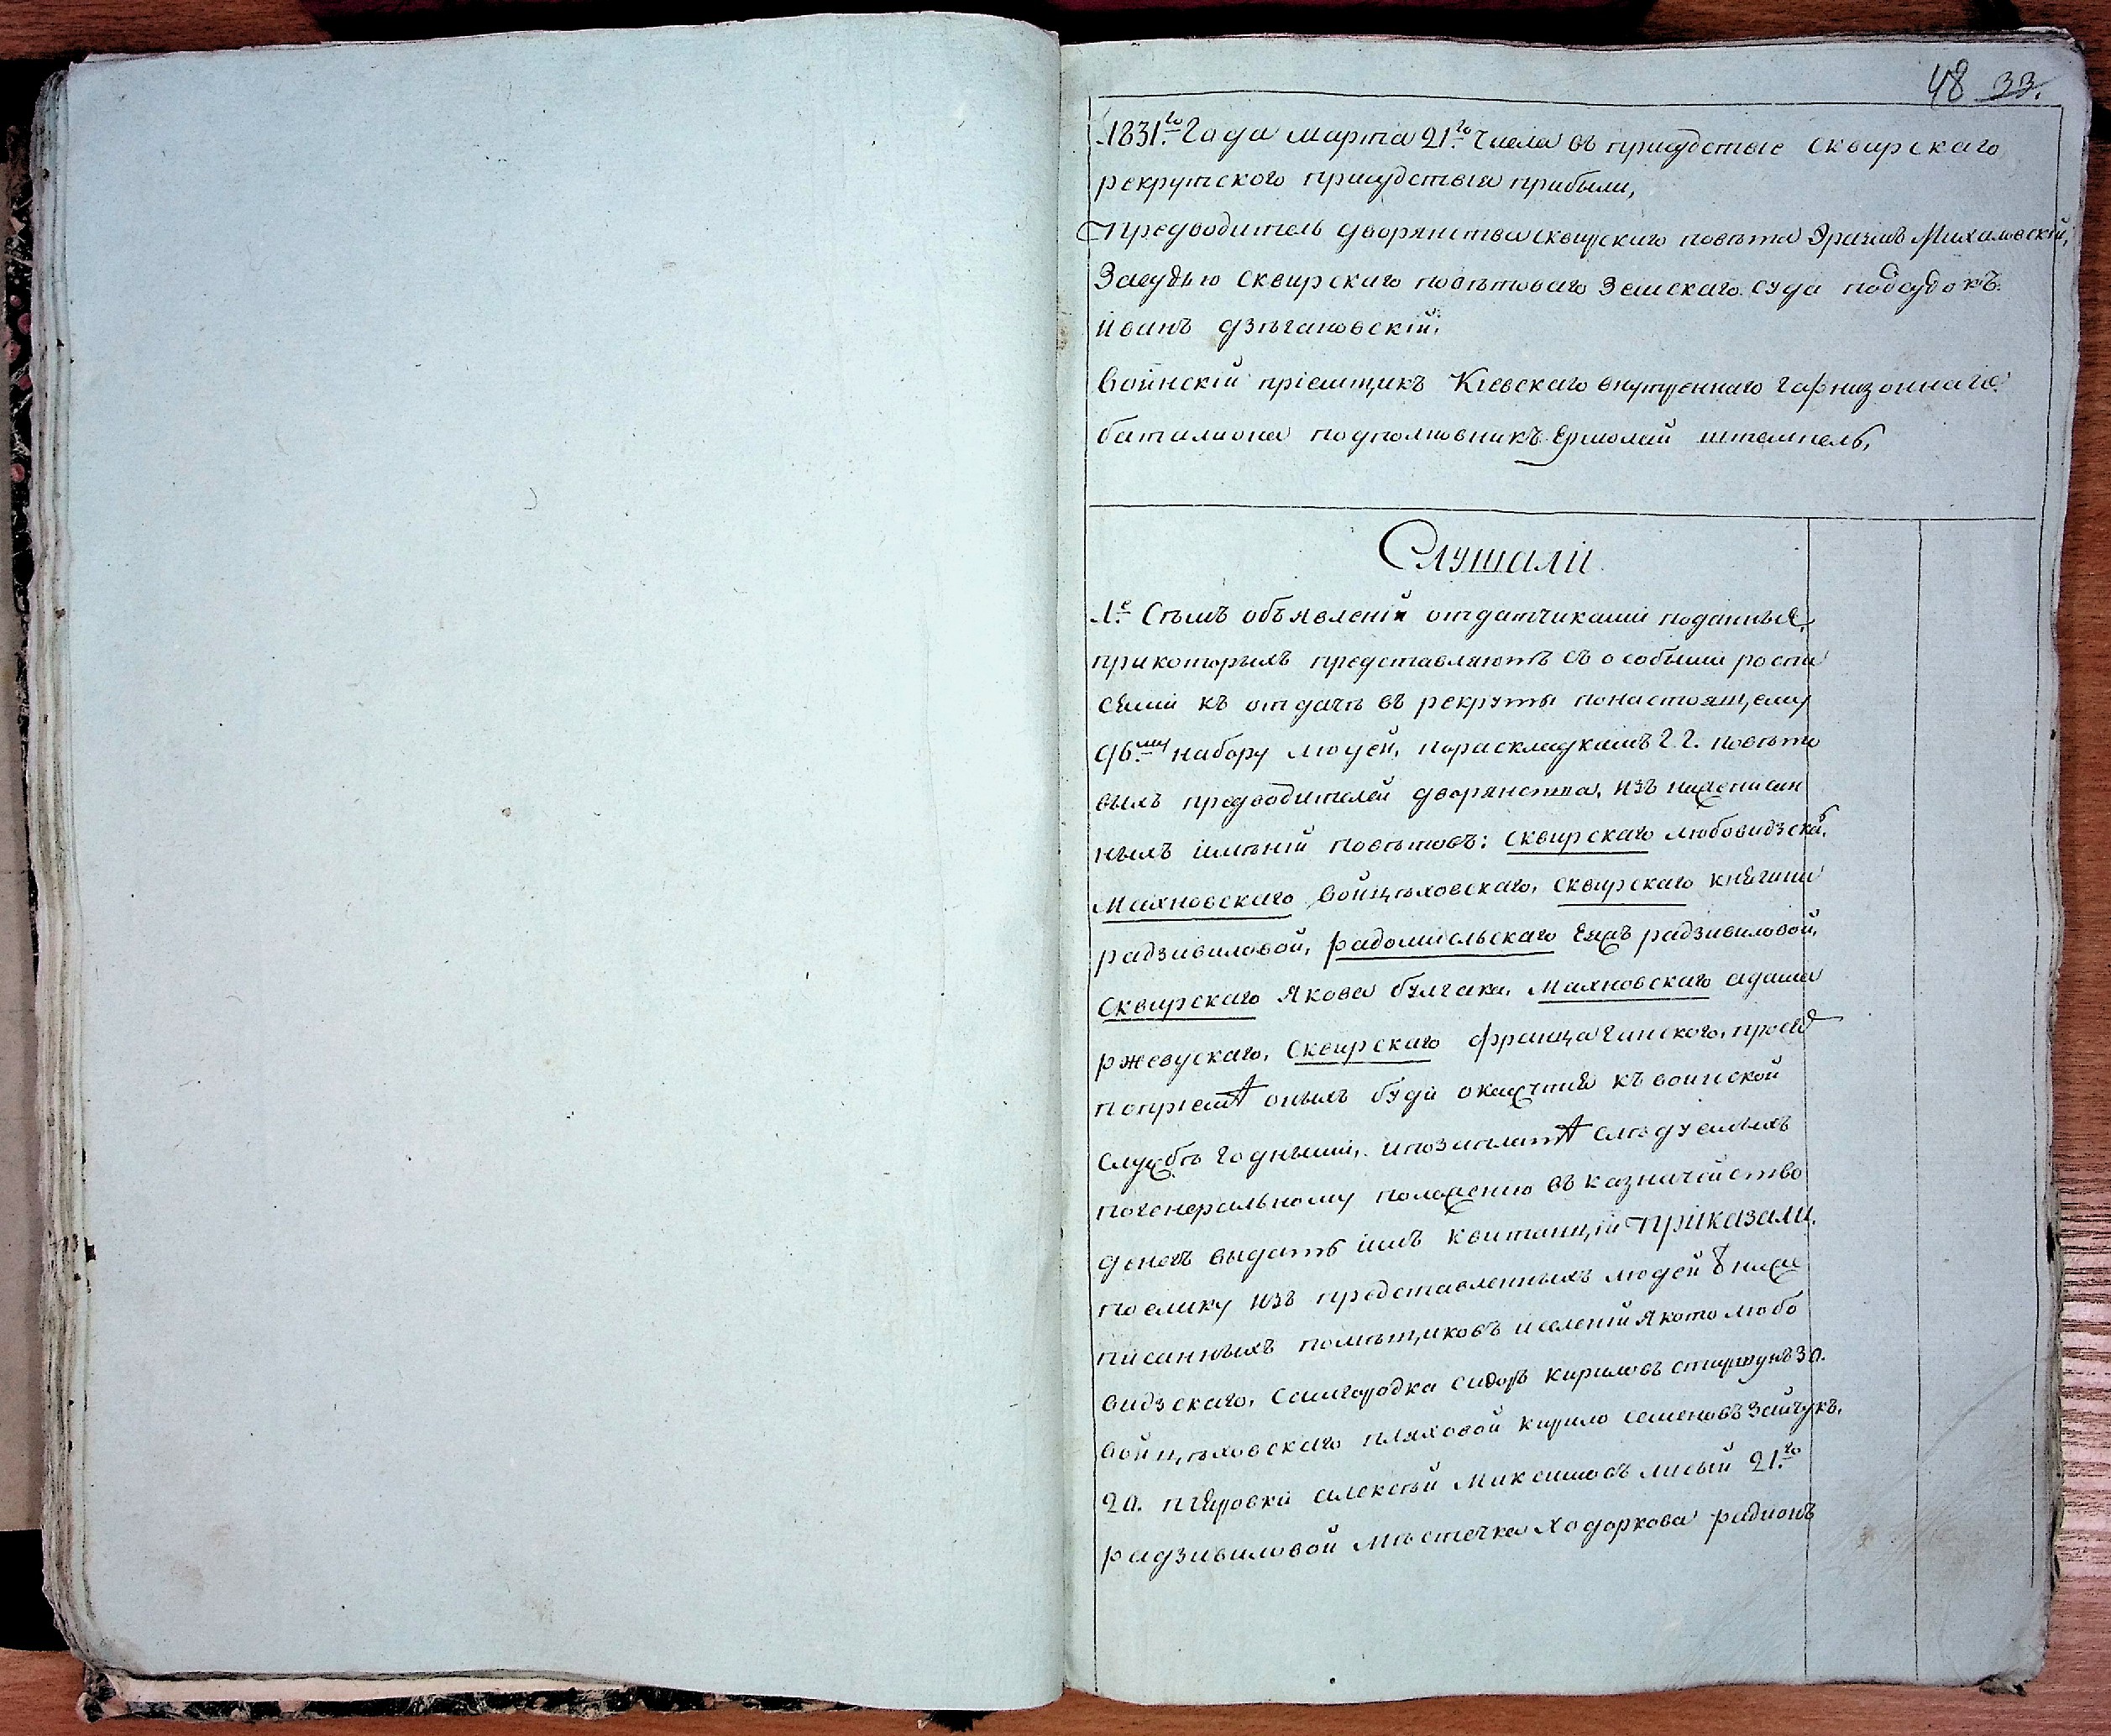 48 33.
1831.го Года марта 21.го Числа въ присудствіе сквирскаго
рекрутского присудствія прибыли,
Предводитель дворянства сквирскаго повѣта Эразмъ Михаловскій,
Засудью сквирскаго повѣтоваго Земскаго суда подсудокъ
иванъ дзѣгановскій.
Воинскій пріемщикъ Кіевскаго внутреннаго гарнизоннаго
баталиона подполковникъ Ермолай штемпель,
Слушали
1.е Сѣмъ объявленій отдатчиками поданные,
при которыхъ представляютъ съ особыми роспи
сями къ отдачѣ въ рекруты понастоящему
96.му набору людей, пораскладкамъ г.г. повѣто
выхъ предводителей дворянства, изъ нижеписан
ныхъ имѣній повѣтовъ: сквирскаго любовидзска.
Махновскаго Войцѣховскаго, сквирскаго княгини
радзивиловой, радомисльскаго Еяжъ радзивиловой,
Сквирскаго Якова булгака, Махновскаго адама
ржевускаго, Сквирскаго франца Чинского, прося
попріемѣ оныхъ буди окажутся къ воинской
службѣ годными, и по заплатѣ слѣдуемыхъ
погенеральному положению въ казначейство
денегъ выдать имъ квитанціи Приказали.
поелику изъ представленныхъ людей ниже
писанныхъ помѣщиковъ и селеній Якото любо
видзскаго, Самгородка сидоръ кириловъ 30.
Войцѣховскаго пляховой кирило семеновъ Зайчукъ,
20. алексѣй Максимовъ лисый 21.го
радзивиловой мѣстечка Ходоркова радионъ